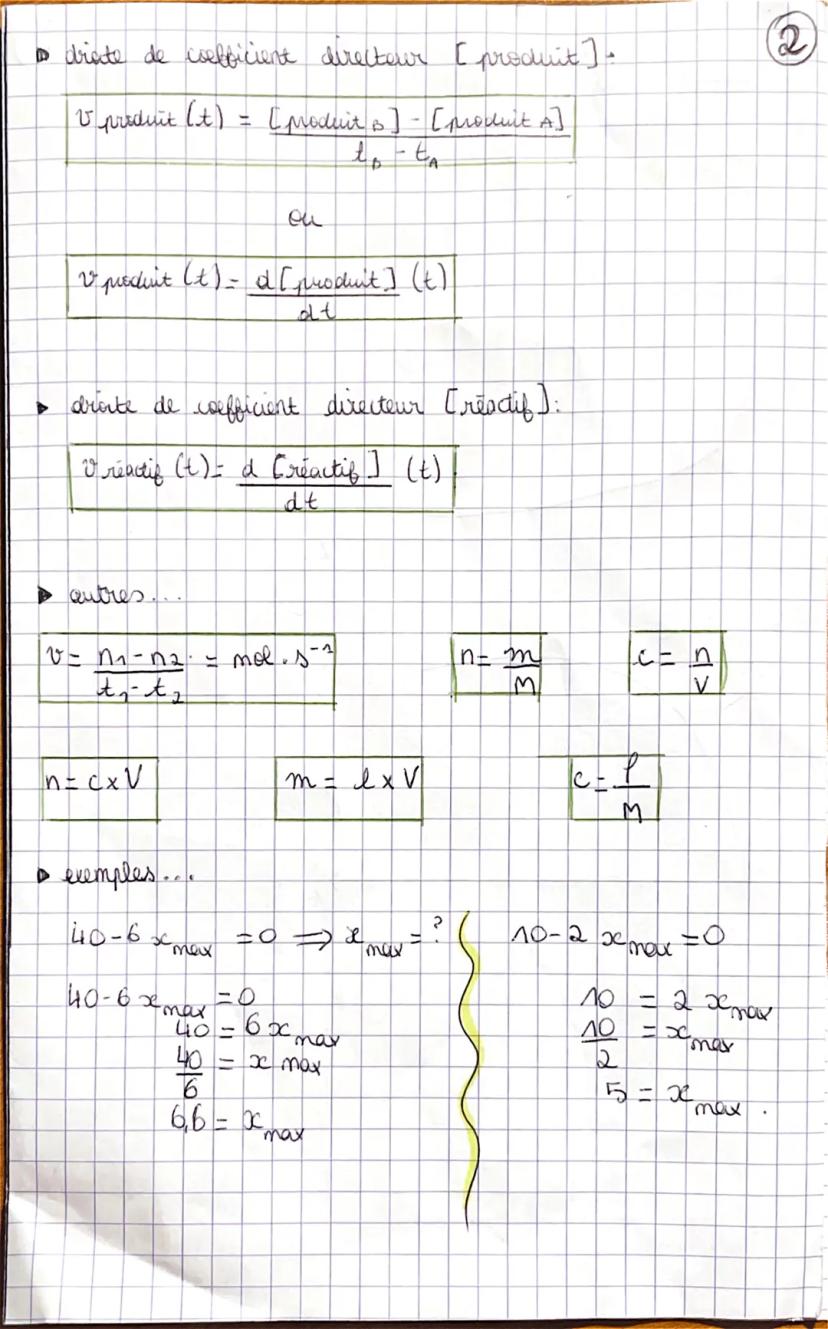 2
droite de coefficient directeur [produit]:
v produit (t) = [produit B] - [produit A] / tB - tA
ou
v produit (t) = d[produit] / dt (t)
droite de coefficient directeur [réactif]:
v réactif (t) = d [réactif] / dt (t)
autres...
v = n1 - n2 / t1 - t2 = mol . s⁻¹
n = m / M
c = n / V
n = c x V
m = ρ x V
c = ρ / M
exemples...
40 - 6 xmax = 0 ⟹ xmax = ?
40 - 6 xmax = 0
40 = 6 xmax
40 / 6 = x max
6,6 = xmax
10 - 2 xmax = 0
10 = 2 xmax
10 / 2 = xmax
5 = xmax .